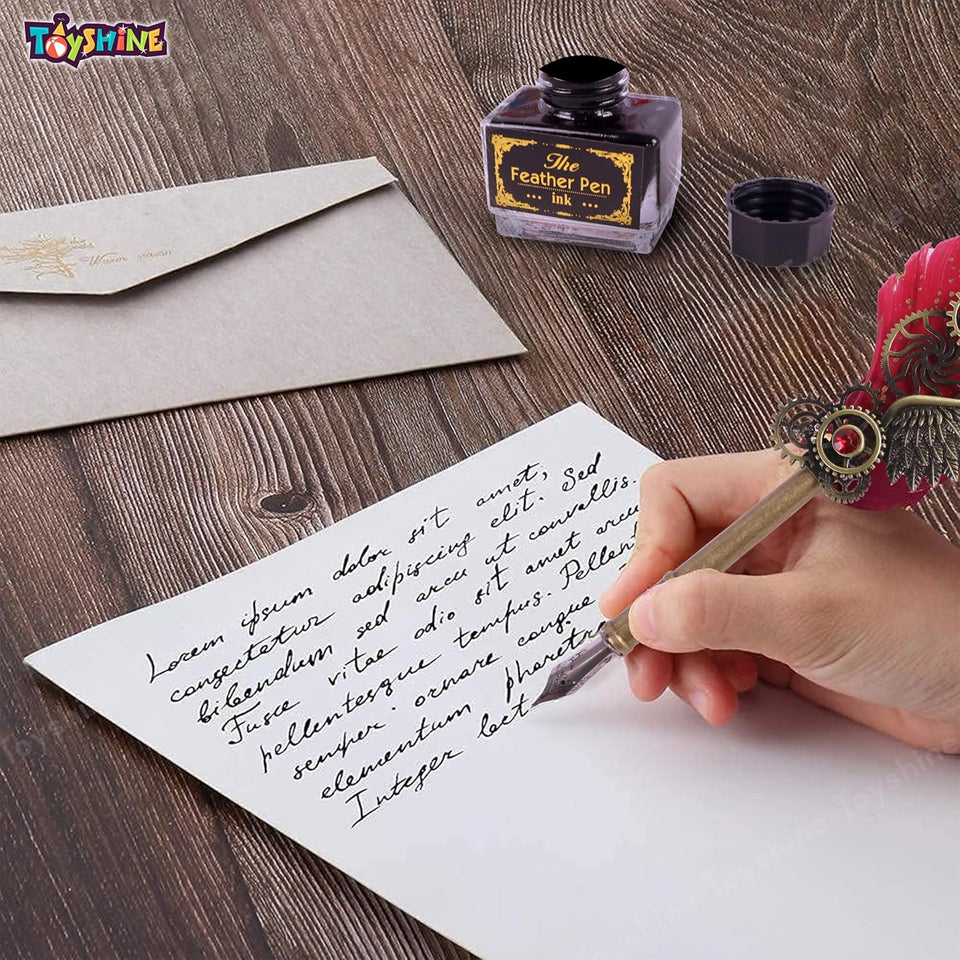 TOYSHINE
The
Feather Pen
ink
Warm
Lorem ipsum dolor sit amet,
consectetur adipiscing elit. Sed
bibendum sed arcu ut convallis.
Fusce vitae odio sit amet arcu
pellentesque tempus. Pellent
semper ornare congue
elementum pharetr
Integer lect
Toyshine
Toyshine
Toyshine
Toyshine